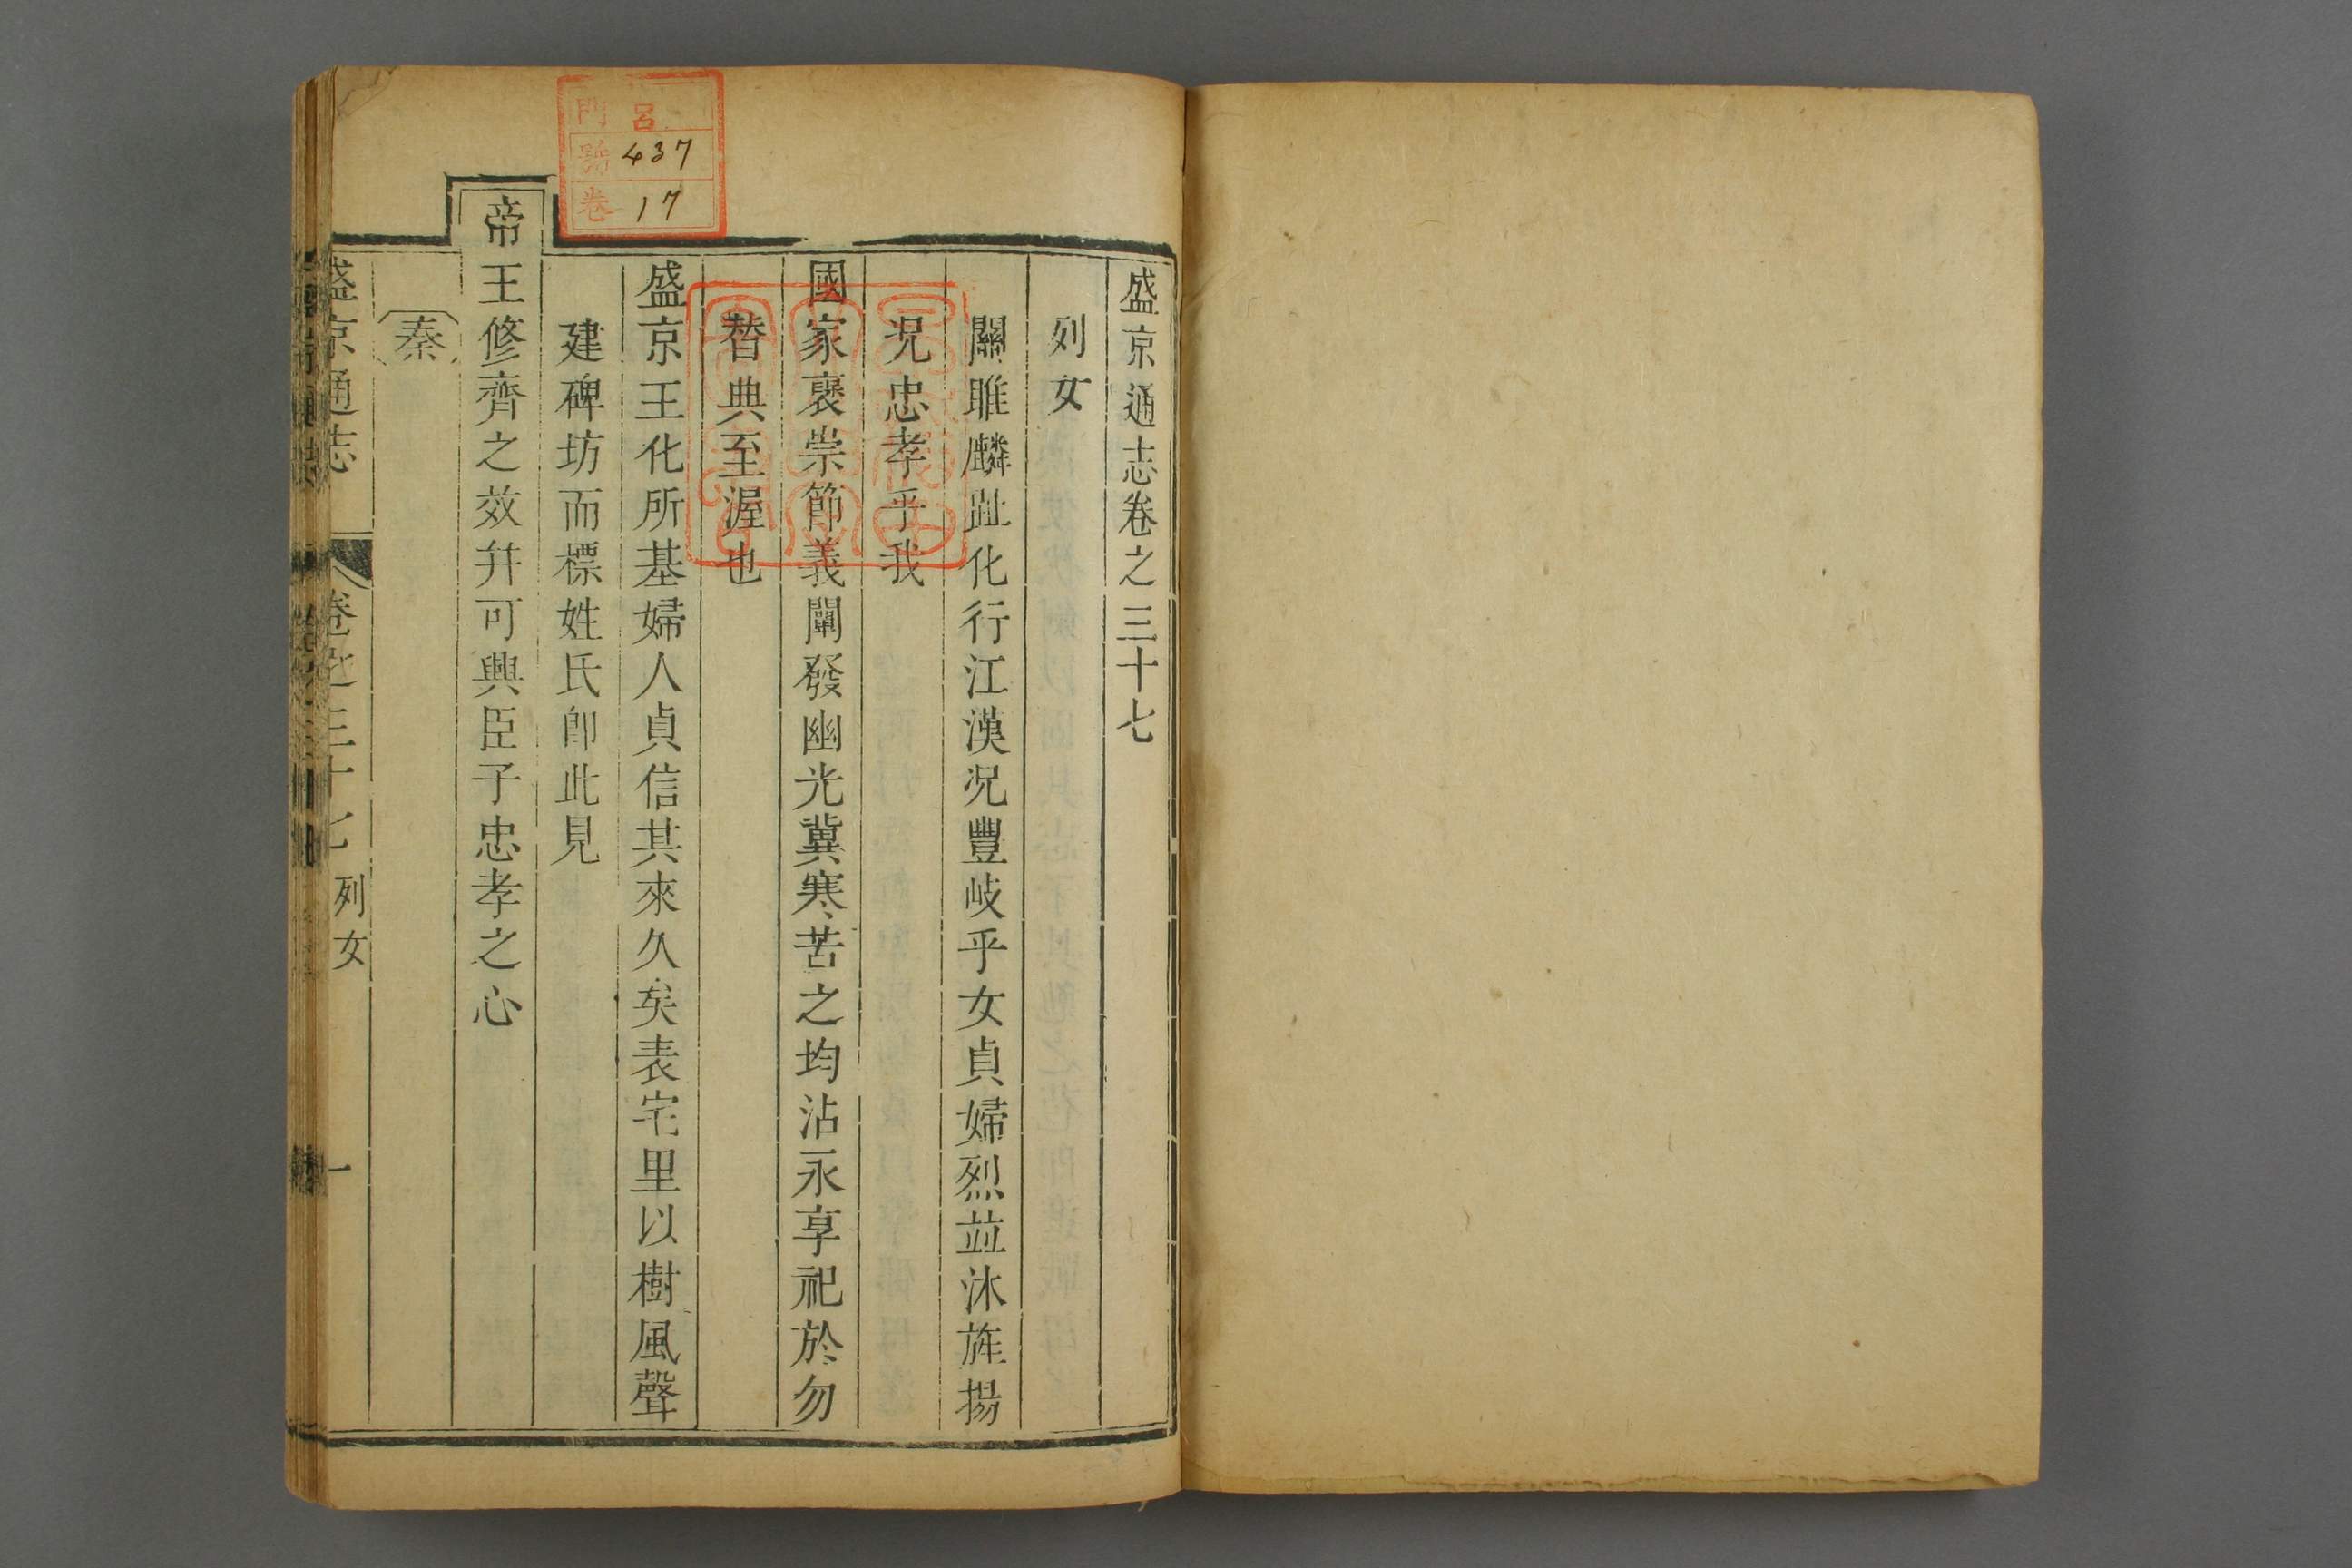 盛京通志卷之三十七
列女
關雎麟趾化行江漢况豐岐乎女貞婦烈並沐旌揚
況忠孝乎我
國家褒崇節義闡發幽光冀寒苦之均沾永享祀於勿
替典至渥也
盛京王化所基婦人貞信其來久矣表宅里以樹風聲
建碑坊而標姓氏卽此見
帝王修齊之效并可興臣子忠孝之心
秦
盛京通志 卷之三十七 列女 一
門 呂
號 437
卷 17